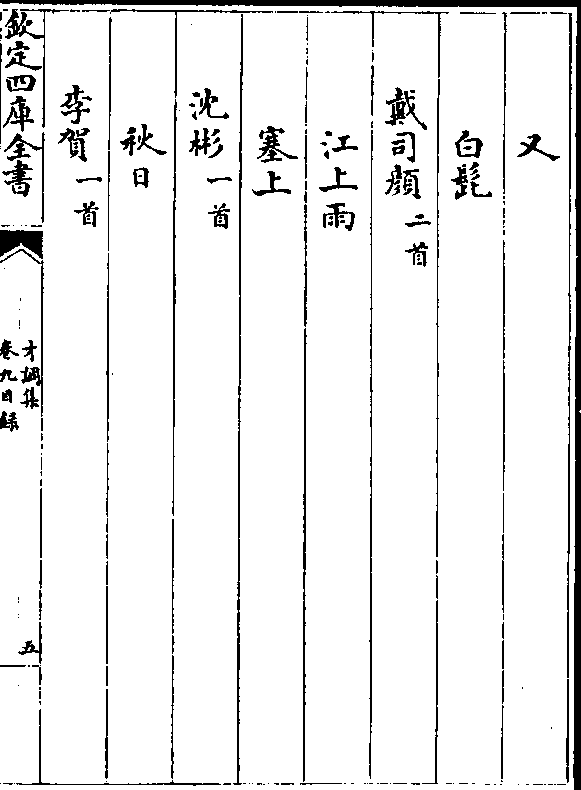 又
白髭
戴司顔二首
江上雨
塞上
沈彬一首
秋日
李賀一首
欽定四庫全書
才調集
卷九目録
五